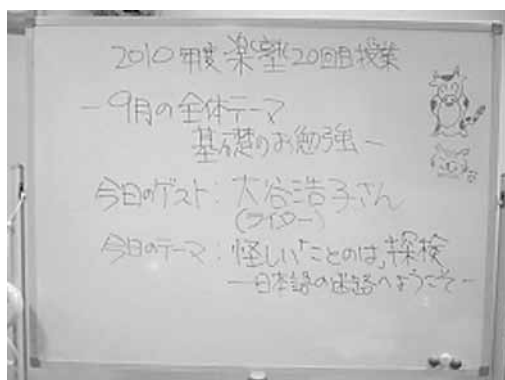 2010年度 楽塾20回目授業
－9月の全体テーマ
基礎のお勉強－
今日のゲスト：大谷浩子さん
(ライター)
今日のテーマ：怪しい「ことのは」探検
－日本語の迷路へようこそ－